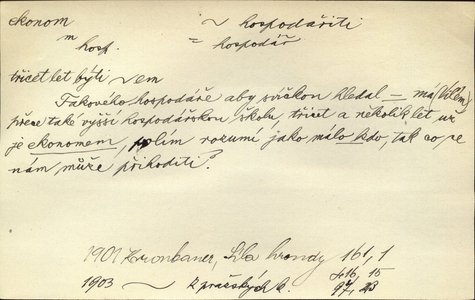 ekonom ~ hospodařiti
m hosp. = hospodář
třicet let býti ~em
Takového hospodáře aby svíčkou hledal – má
přece také vyšší hospodářskou školu, třicet a několik let už
je ekonomem, polím rozumí jako málo kdo, tak co se
nám může přihoditi?
1901 Kronbauer, Síla hroudy 161, 1
1903 ~ Z pražských k 16, 15
97, 28